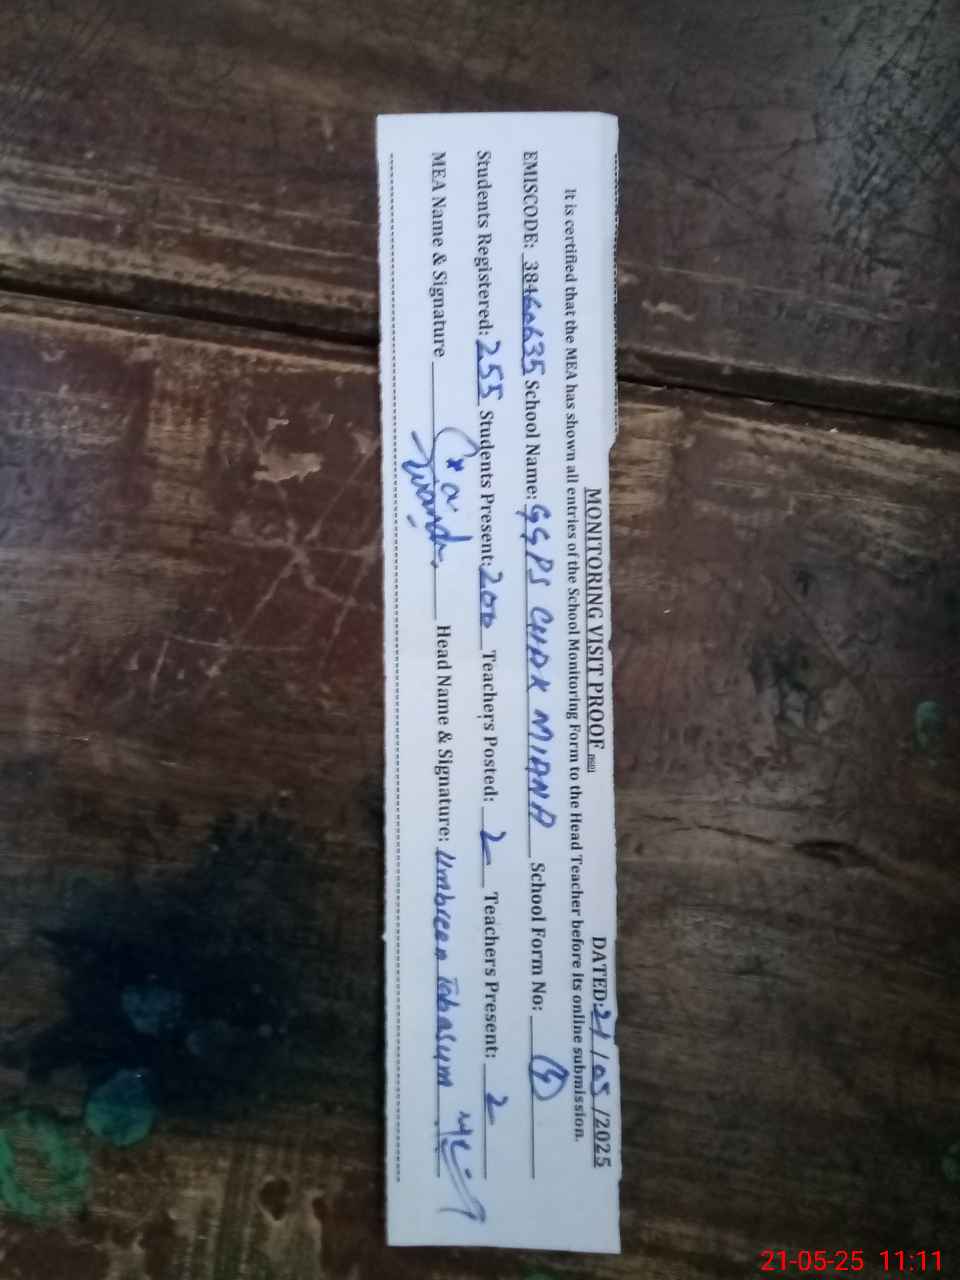 MONITORING VISIT PROOF DATED: 21/05/2025
It is certified that the MEA has shown all entries of the School Monitoring Form to the Head Teacher before its online submission.
EMISCODE: 38460635 School Name: GGPS CHAK MIANA School Form No:
Students Registered: 255 Students Present: 200 Teachers Posted: 2 Teachers Present: 2
MEA Name & Signature Head Name & Signature: Umbreen Tabasum
21-05-25 11:11